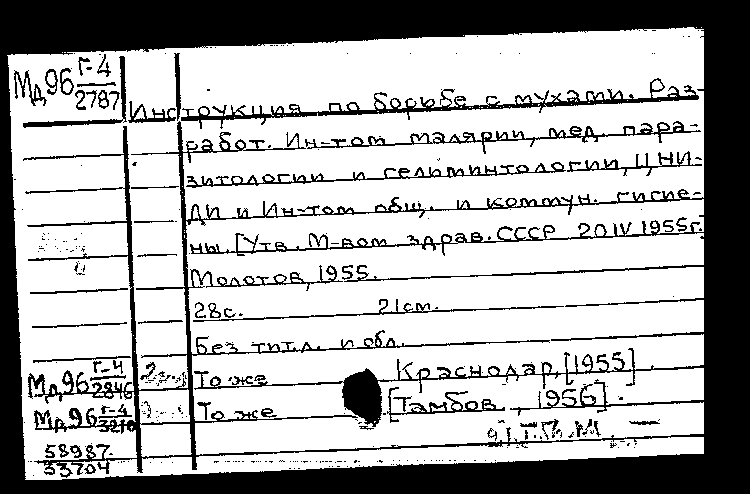 Мд96 Г-4/2787
Инструкция по борьбе с мухами. Раз-
работ. Ин-том малярии, мед. пара-
зитологии и гельминтологии, ЦНИ-
ДИ и Ин-том общ. и коммун. гигие-
ны. [Утв. М-вом здрав. СССР 20 IV 1955г.]
Молотов, 1955.
28с. 21см.
Без тит.л. и обл.
Мд96 Г-4/2846 То же Краснодар, [1955].
Мд96 Г-4/3210 То же [Тамбов, 1956].
58987
33704